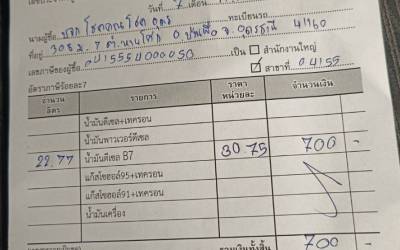 วันที่ 7 เดือน
นามผู้ซื้อ บจก โชคคูณโชค อุดร ทะเบียนรถ
ที่อยู่ 308 ม. 7 อ. จ. อุดรธานี 41160
เลขภาษีของผู้ซื้อ 0415554000050 เป็น สำนักงานใหญ่
อัตราภาษีร้อยละ7 ✓ สาขาที่
จำนวนลิตร รายการ ราคาหน่วยละ จำนวนเงิน
น้ำมันดีเซล+เทครอน
น้ำมันพาวเวอร์ดีเซล
22.77 น้ำมันดีเซล B7 30 75 700 -
แก๊สโซฮอล์95+เทครอน
แก๊สโซฮอล์91+เทครอน
น้ำมันเครื่อง
รวมเงินทั้งสิ้น 700 -